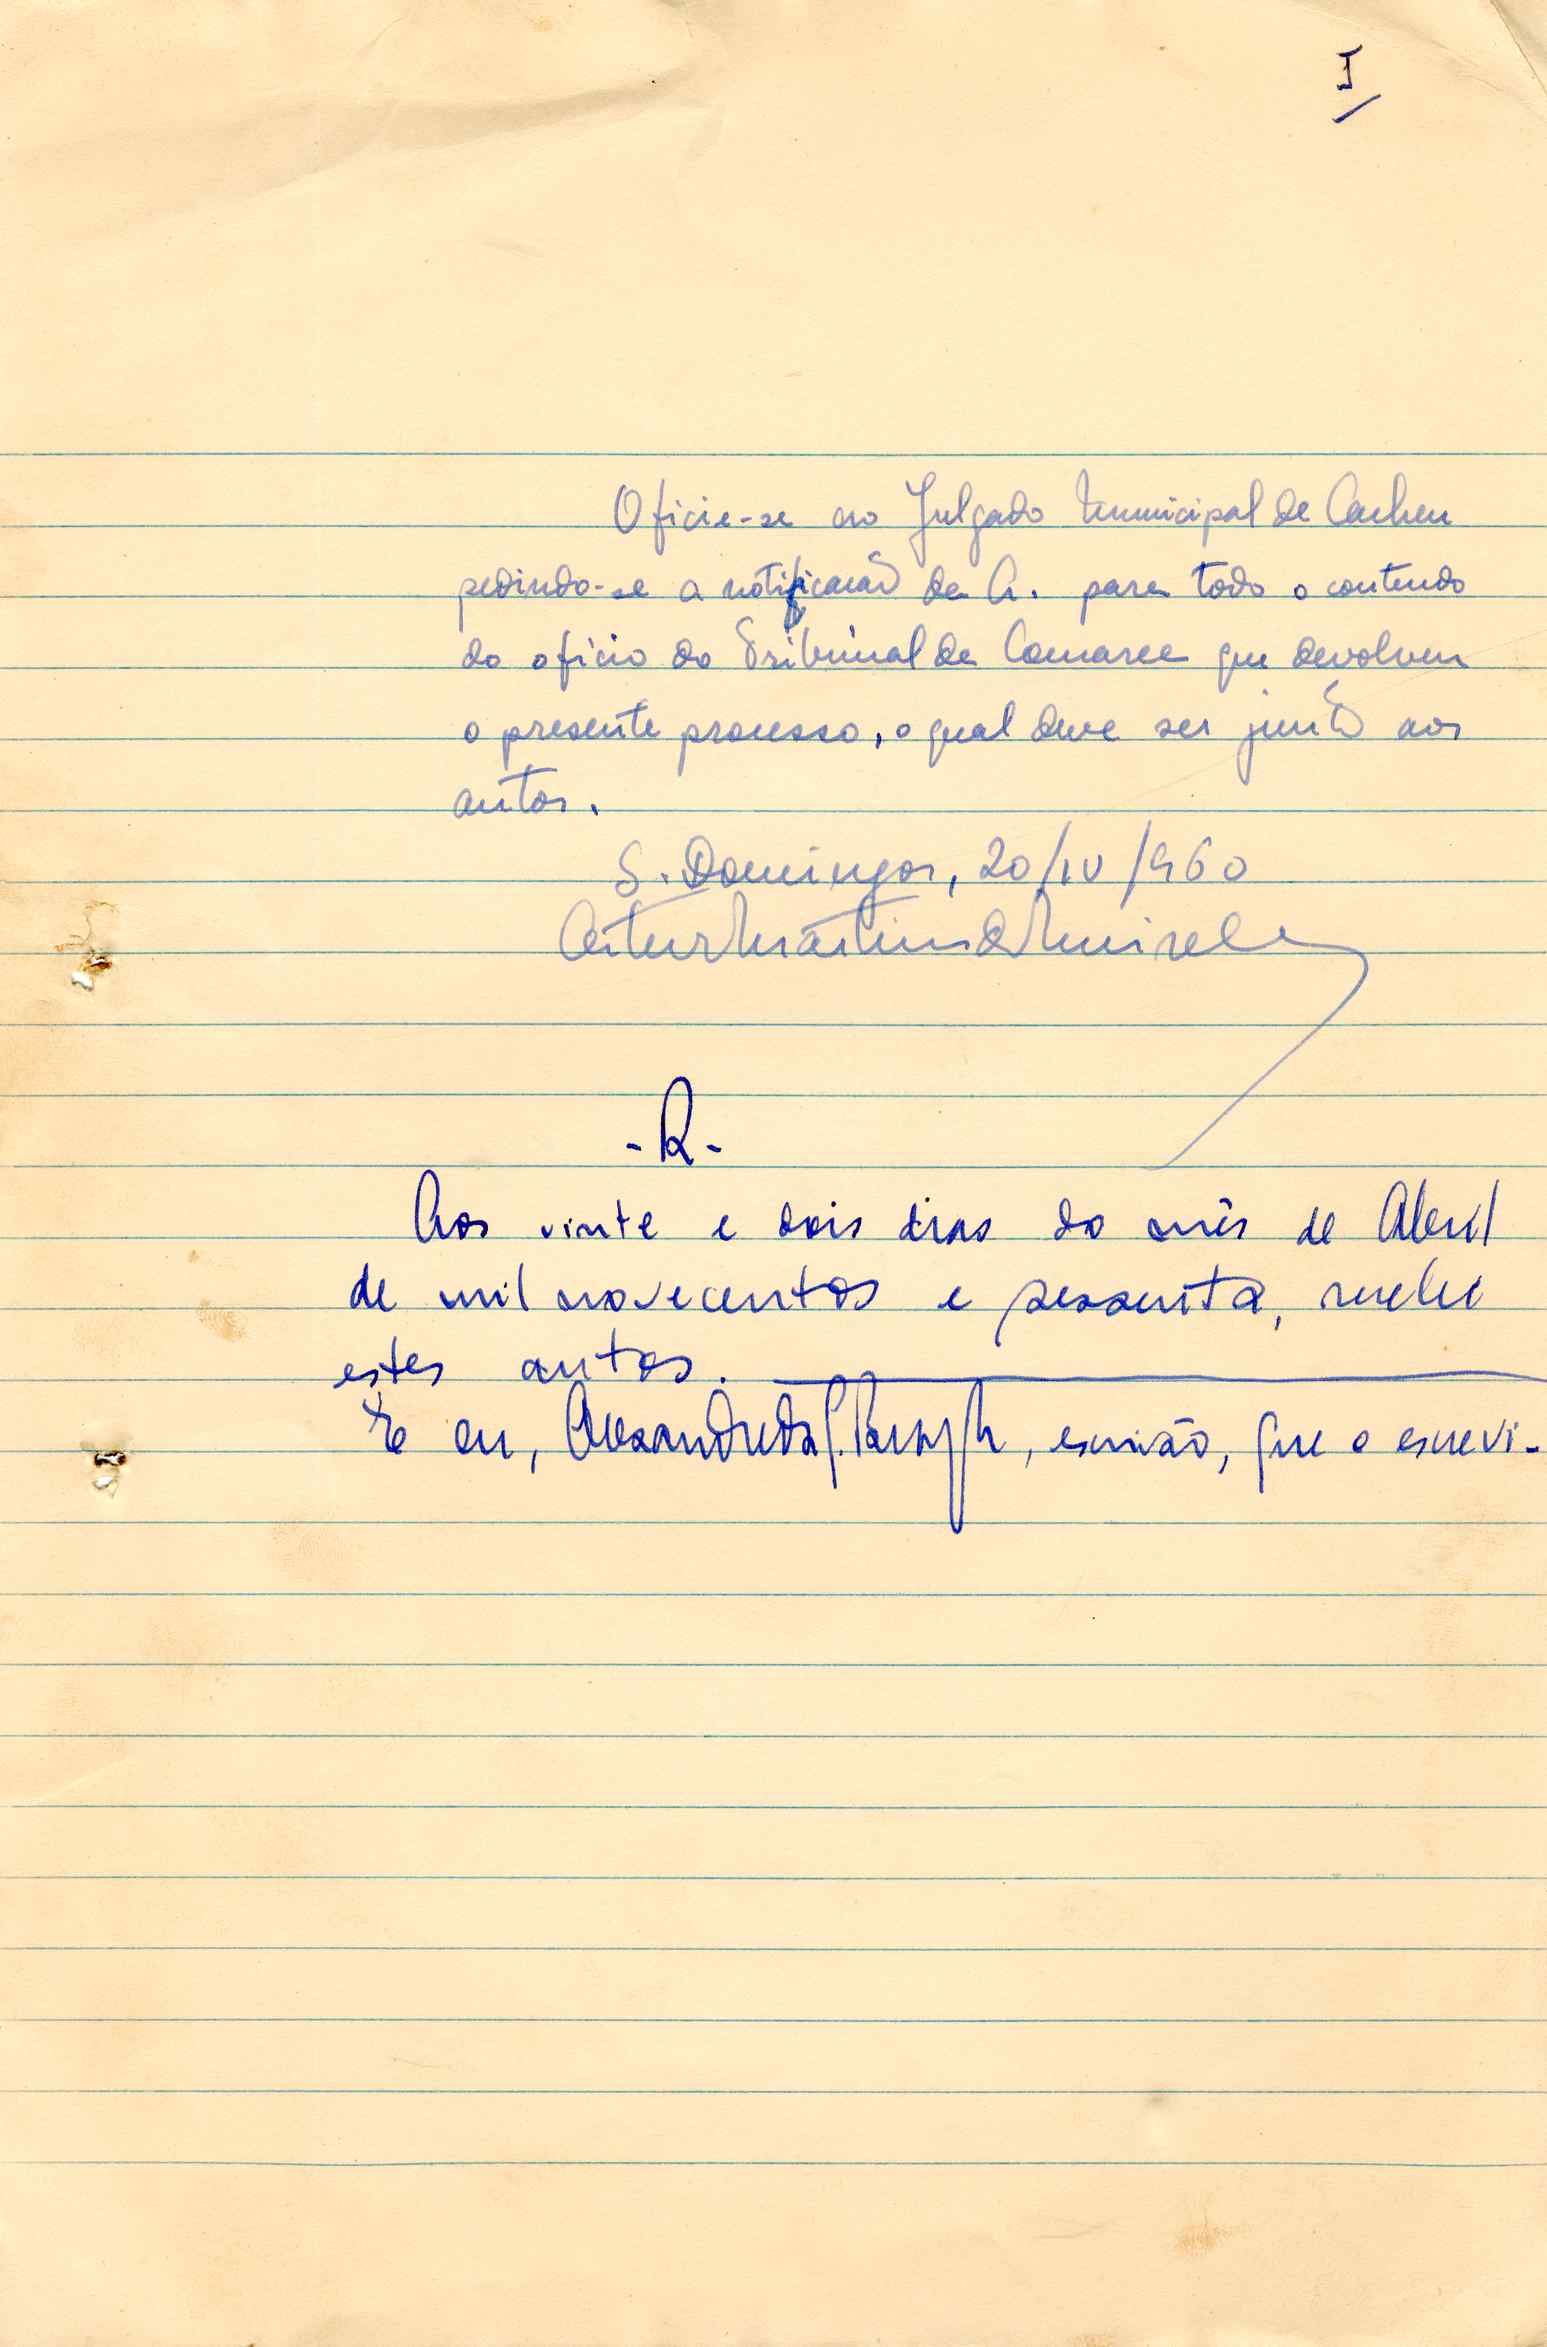 I
Oficie-se ao Julgado Municipal de Cacheu
pedindo-se a notificação da A. para todo o conteudo
do oficio do Tribunal da Comarca que devolveu
o presente processo, o qual deve ser junto aos
autos.
S. Domingos, 20/IV/960
Artur Martins de Meireles
- R -
Aos vinte e dois dias do mês de Abril
de mil novecentos e sessenta, recebi
estes autos.
E eu, Alexandre da, escrivão, que o escrevi-